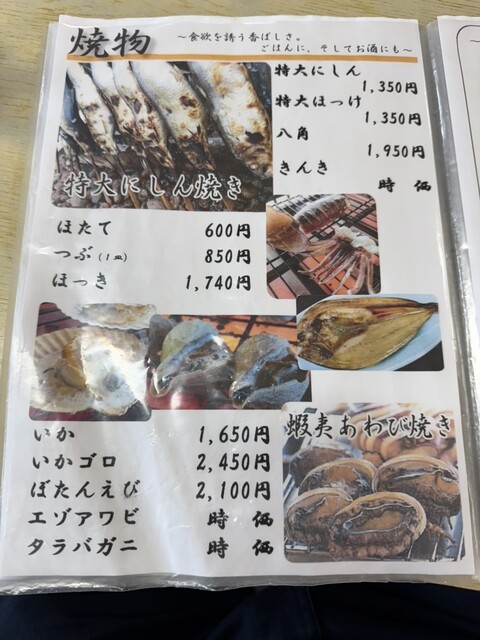 焼物
～食欲を誘う香ばしさ。
ごはんに、そしてお酒にも～
特大にしん
1,350円
特大ほっけ
1,350円
八角
1,950円
きんき
時価
特大にしん焼き
ほたて 600円
つぶ(1皿) 850円
ほっき 1,740円
いか 1,650円
いかゴロ 2,450円
ぼたんえび 2,100円
エゾアワビ 時価
タラバガニ 時価
蝦夷あわび焼き